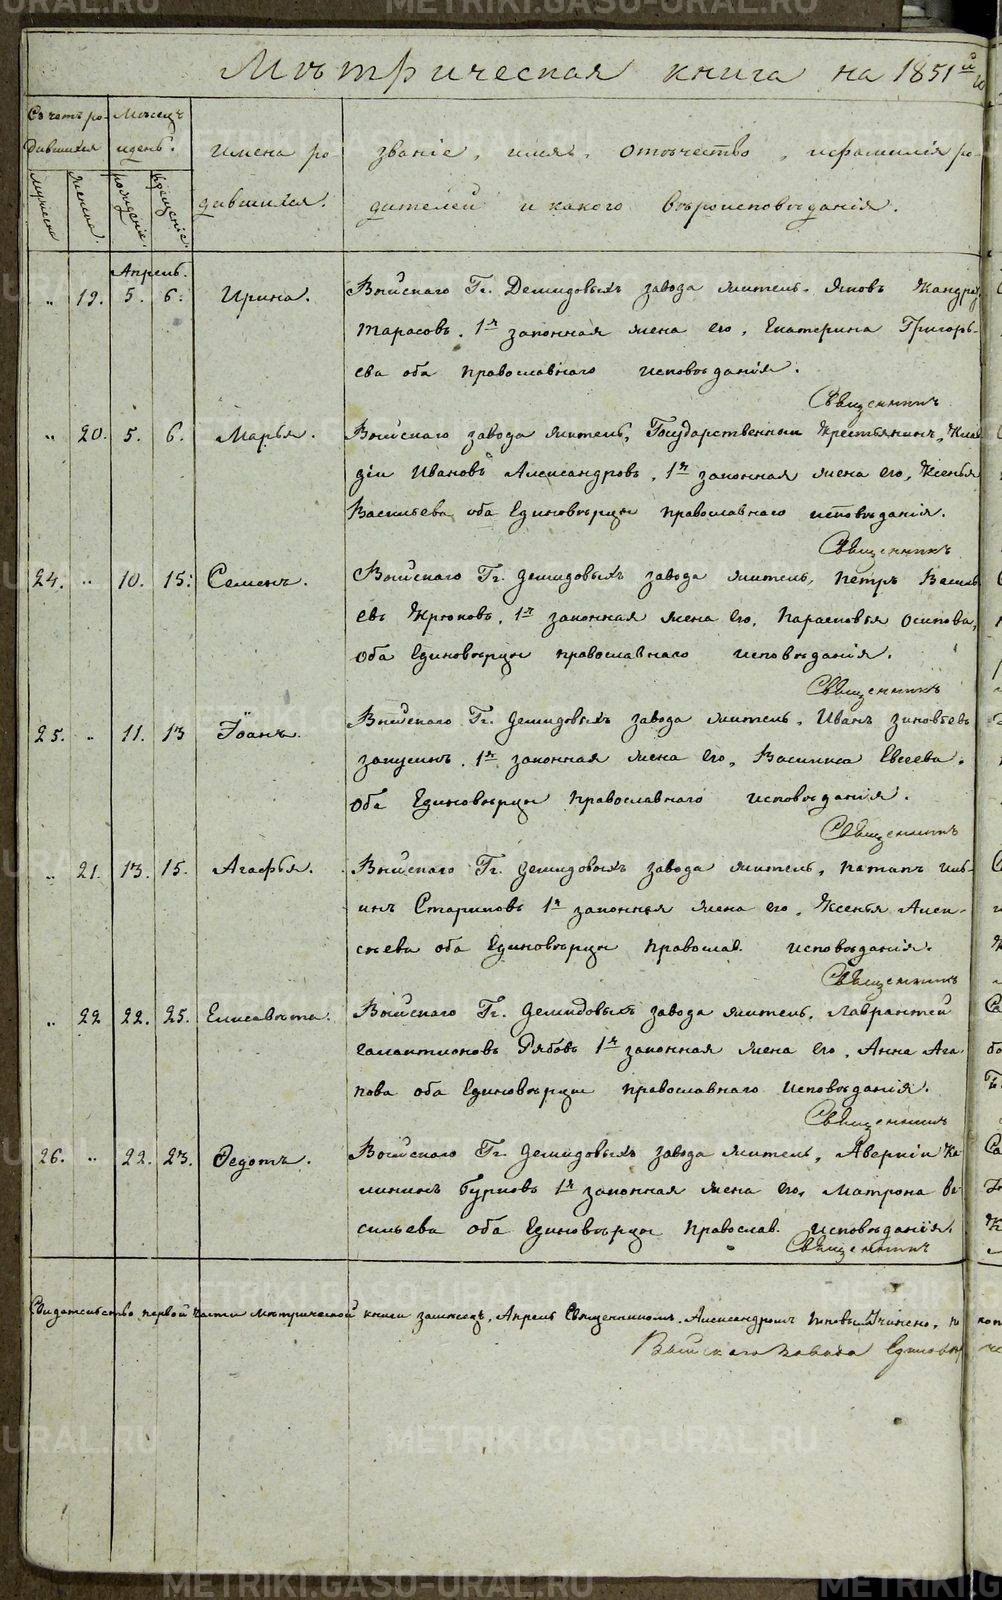 Метрическая книга на 1851й
Счетъ ро- Мѣсяцъ
дившихся и день. имена ро- званіе, имя, отчество, и фамилія ро-
мужеска женска. рожденіе. крещеніе. дившихся. дителей и какого вѣроисповѣданія.
Апрель.
„ 19. 5. 6. Ирина. Выйскаго Гг. Демидовыхъ завода житель. Яковъ
Тарасовъ. 1я законная жена его, Екатерина Григорь-
ева оба православнаго исповѣданія.
Священникъ
„ 20. 5. 6. Марья. Выйскаго завода житель, Государственный крестьянинъ,
Ивановъ Александровъ, 1я законная жена его, Ксенья
Васильева, оба Единовѣрцы православнаго исповѣданія.
Священникъ
24. „ 10. 15. Семенъ. Выйскаго Гг. Демидовыхъ завода житель, Петръ Василь
евъ Крюковъ, 1я законная жена его, Парасковья Осипова,
оба Единовѣрцы православнаго исповѣданія.
Священникъ
25. „ 11. 13 Іоанъ. Выйскаго Гг. Демидовыхъ завода житель, Иванъ Зиновьевъ
запусинъ. 1я законная жена его, Василиса Евсеева.
оба Единовѣрцы православнаго исповѣданія.
Священникъ
„ 21. 13. 15. Агафья. Выйскаго Гг. Демидовыхъ завода житель, Патапъ Иль-
инъ Стариковъ 1я законная жена его, Ксенья Алек-
сѣева оба Единовѣрцы Православ. исповѣданія.
Священникъ
„ 22 22. 25. Елисавѣта. Выйскаго Гг. Демидовыхъ завода житель, Лаврентей
Галактионовъ Рябовъ 1я законная жена его, Анна Ага
пова оба Единовѣрцы православнаго исповѣданія.
Священникъ
26. „ 22. 23. Ѳедотъ. Выйскаго Гг. Демидовыхъ завода житель, Аверкіи Ка
лининъ Бурковъ 1я законная жена его, Матрона Ва
сильева оба Единовѣрцы Православ. исповѣданія.
Священникъ
Свидетельство первой части метрической книги за месяцъ, Апрель Священникомъ. Александромъ Учинено, по
Выйскаго завода Единовѣр